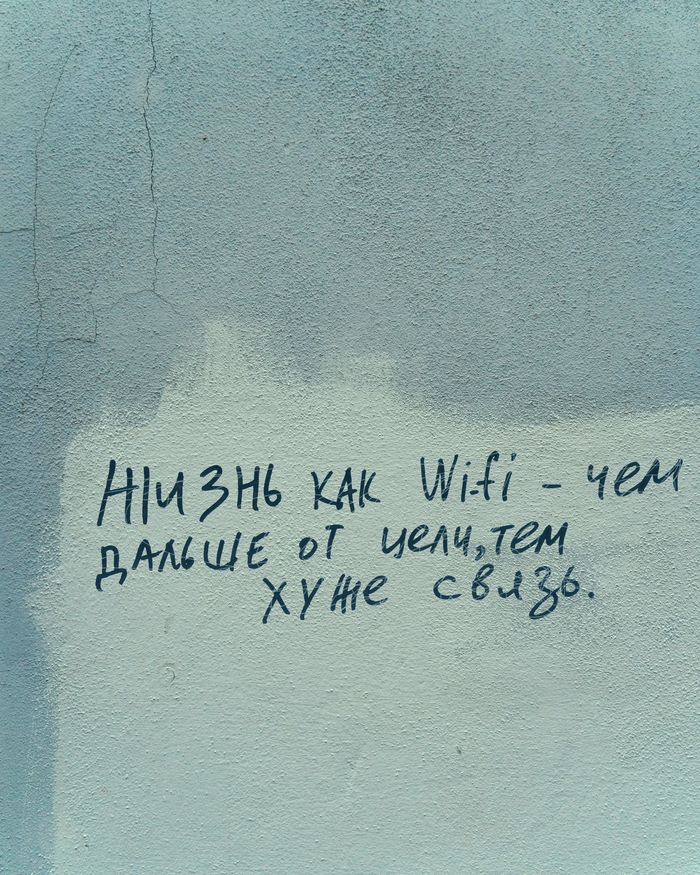 Жизнь как Wi-fi - чем
дальше от цели, тем
хуже связь.